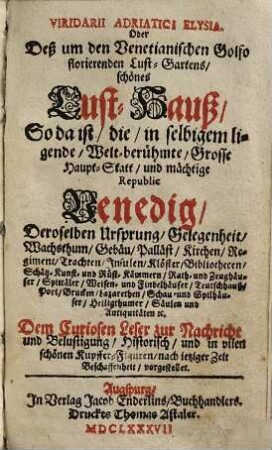 VIRIDARII ADRIATICI ELYSIA.
Oder
Deß um den Venetianischen Golfo
florierenden Lust-Gartens/
schönes
Lust-Hauß/
So da ist/ die/ in selbigem li-
gende/ Welt-berühmte/ Grosse
Haupt-Statt/ und mächtige
Republic
Venedig/
Deroselben Ursprung/ Gelegenheit/
Wachsthum/ Gebäu/ Palläst/ Kirchen/ Re-
giment/ Trachten/ Insulen/ Klöster/ Bibliothecen/
Schätz-Kunst- und Rüst-Kämmern/ Rath- und Zeughäu-
ser/ Spitäler/ Weisen- und Findelhäuser/ Teutschhauß/
Port/ Brucken/ Lazarethen/ Schau- und Spilhäu-
ser/ Heiligthumer/ Säulen und
Antiquitäten ꝛc.
Dem Curiosen Leser zur Nachricht
und Belustigung/ Historisch/ und in vilen
schönen Kupffer-Figuren/ nach jetziger Zeit
Beschaffenheit/ vorgestellet.
Augspurg/
In Verlag Jacob Enderlins/ Buchhandlers.
Druckts Thomas Astaler.
MDCLXXXVII